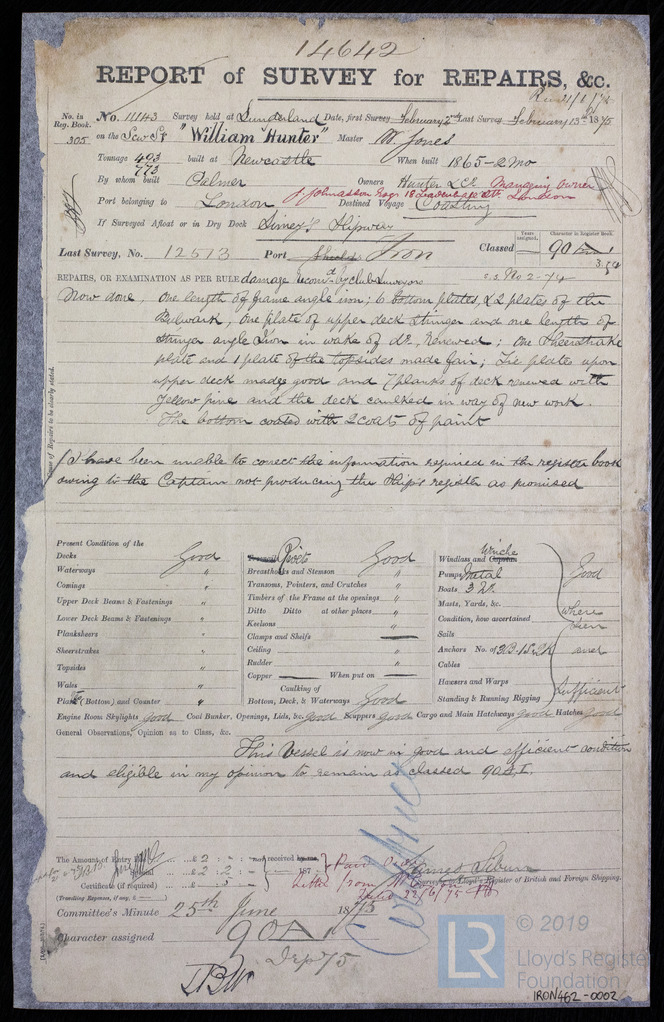 14642
REPORT of SURVEY for REPAIRS, &c.
No. in Reg. Book. No. 11143 Survey held at Sunderland Date, first Survey February 2nd Last Survey February 13th 1875
305 on the Scw Sr "William Hunter" Master W. Jones
Tonnage 493 built at Newcastle When built 1865-2mo
773
By whom built Palmer Owners Hunter & Co Managing Owner
Port belonging to London Destined Voyage Coasting
If Surveyed Afloat or in Dry Dock Slipway
Years assigned. Character in Register Book.
Last Survey, No. 12513 Port Shields Iron Classed 90 A 1
REPAIRS, OR EXAMINATION AS PER RULE damage recom'd by club surveyors s.s. No 2-74
Now done, One length of frame angle iron; 6 bottom plates, & 2 plates of the
Bulwark, one plate of upper deck stringer and one length of
stringer angle Iron in wake of do, renewed; one Sheerstrake
plate and 1 plate of the topsides made fair; Tie plate upon
upper deck made good and 7 planks of deck renewed with
yellow pine and the deck caulked in way of new work.
The bottom coated with 2 coats of paint
I have been unable to corect the information required in the register book
owing to the Captain not producing the Ship's register as promised
Present Condition of the
Decks Good
Waterways "
Comings "
Upper Deck Beams & Fastenings "
Lower Deck Beams & Fastenings "
Planksheers "
Sheerstrakes "
Topsides "
Wales "
Plates (Bottom) and Counter "
Rivets Good
Breasthooks and Stemson "
Transoms, Pointers, and Crutches "
Timbers of the Frame at the openings "
Ditto Ditto at other places "
Keelsons "
Clamps and Shelfs
Ceiling "
Rudder "
Copper When put on
Caulking of
Bottom, Deck, & Waterways Good
Windlass and Winche
Pumps Metal
Boats 3 No.
Masts, Yards, &c.
Condition, how ascertained
Sails
Anchors No. of 3B. 1S. 2K
Cables
Hawsers and Warps
Standing & Running Rigging
Good
where
seen
and
Sufficient
Engine Room Skylights good Coal Bunker, Openings, Lids, &c. good Scuppers good Cargo and Main Hatchways good Hatches good
General Observations, Opinion as to Class, &c.
This Vessel is now in good and efficient condition
and eligible in my opinion to remain as classed 90A.1.
The Amount of Entry Fee £ 2 : - : - received by me,
£ 2 : 2 : -
Certificate (if required) 5
(Travelling Expenses, if any, £ )
Paid Owner
Letter from
Dated 22/6/75
Surveyor to Lloyd's Register of British and Foreign Shipping.
Committee's Minute 25th June 1875
Character assigned 90 A 1
© 2019
LR
Lloyd's Register
Foundation
IRON462-0002